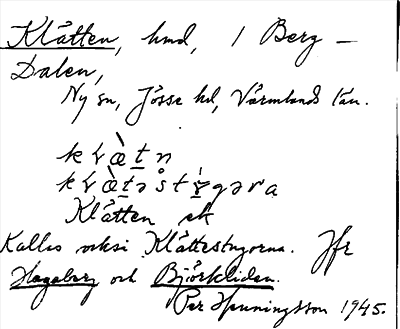 Klätten, hmd, 1 Berg –
Dalen,
Ny sn, Jösse hd, Värmlands län.
Klätten sk
Kallas också Klättestugorna. Jfr
Hageberg och Björkliden.
Per Henningsson 1945.